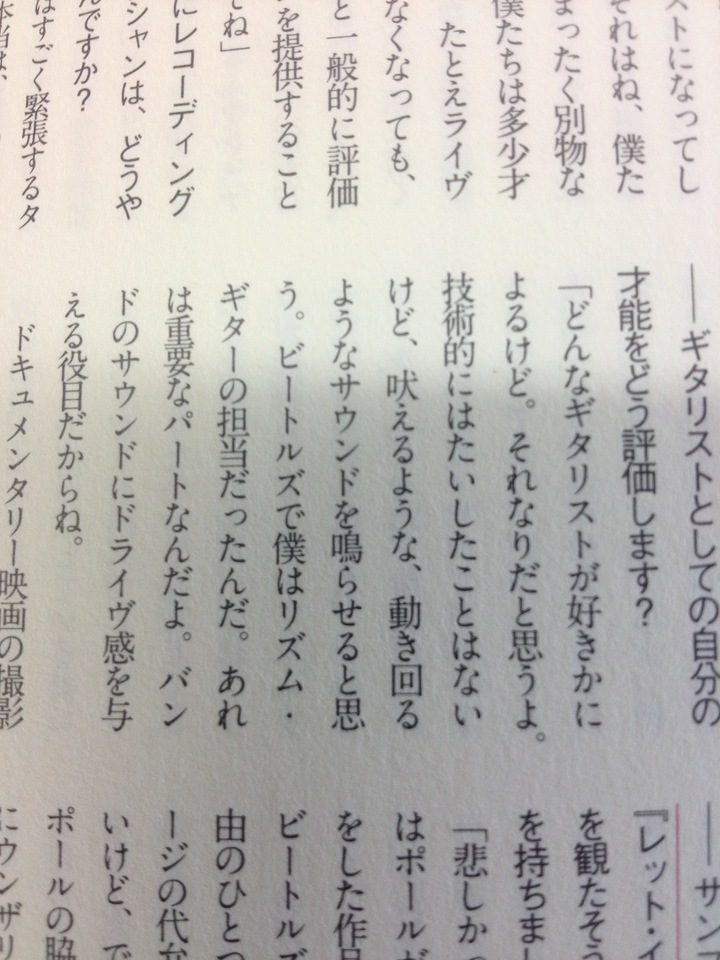 ストになってし
それはね、僕た
まったく別物な
僕たちは多少才
たとえライヴ
なくなっても、
と一般的に評価
を提供すること
てね」
にレコーディング
シャンは、どうや
んですか?
はすごく緊張するタ
本当は、
――ギタリストとしての自分の
才能をどう評価します?
「どんなギタリストが好きかに
よるけど。それなりだと思うよ。
技術的にはたいしたことはない
けど、吠えるような、動き回る
ようなサウンドを鳴らせると思
う。ビートルズで僕はリズム・
ギターの担当だったんだ。あれ
は重要なパートなんだよ。バン
ドのサウンドにドライヴ感を与
える役目だからね。
ドキュメンタリー映画の撮影
――サン
『レット・イ
を観たそう
を持ちまし
「悲しかっ
はポールが
をした作品
ビートルズ
由のひとつ
ージの代弁
いけど、で
ポールの脇
にウンザリ